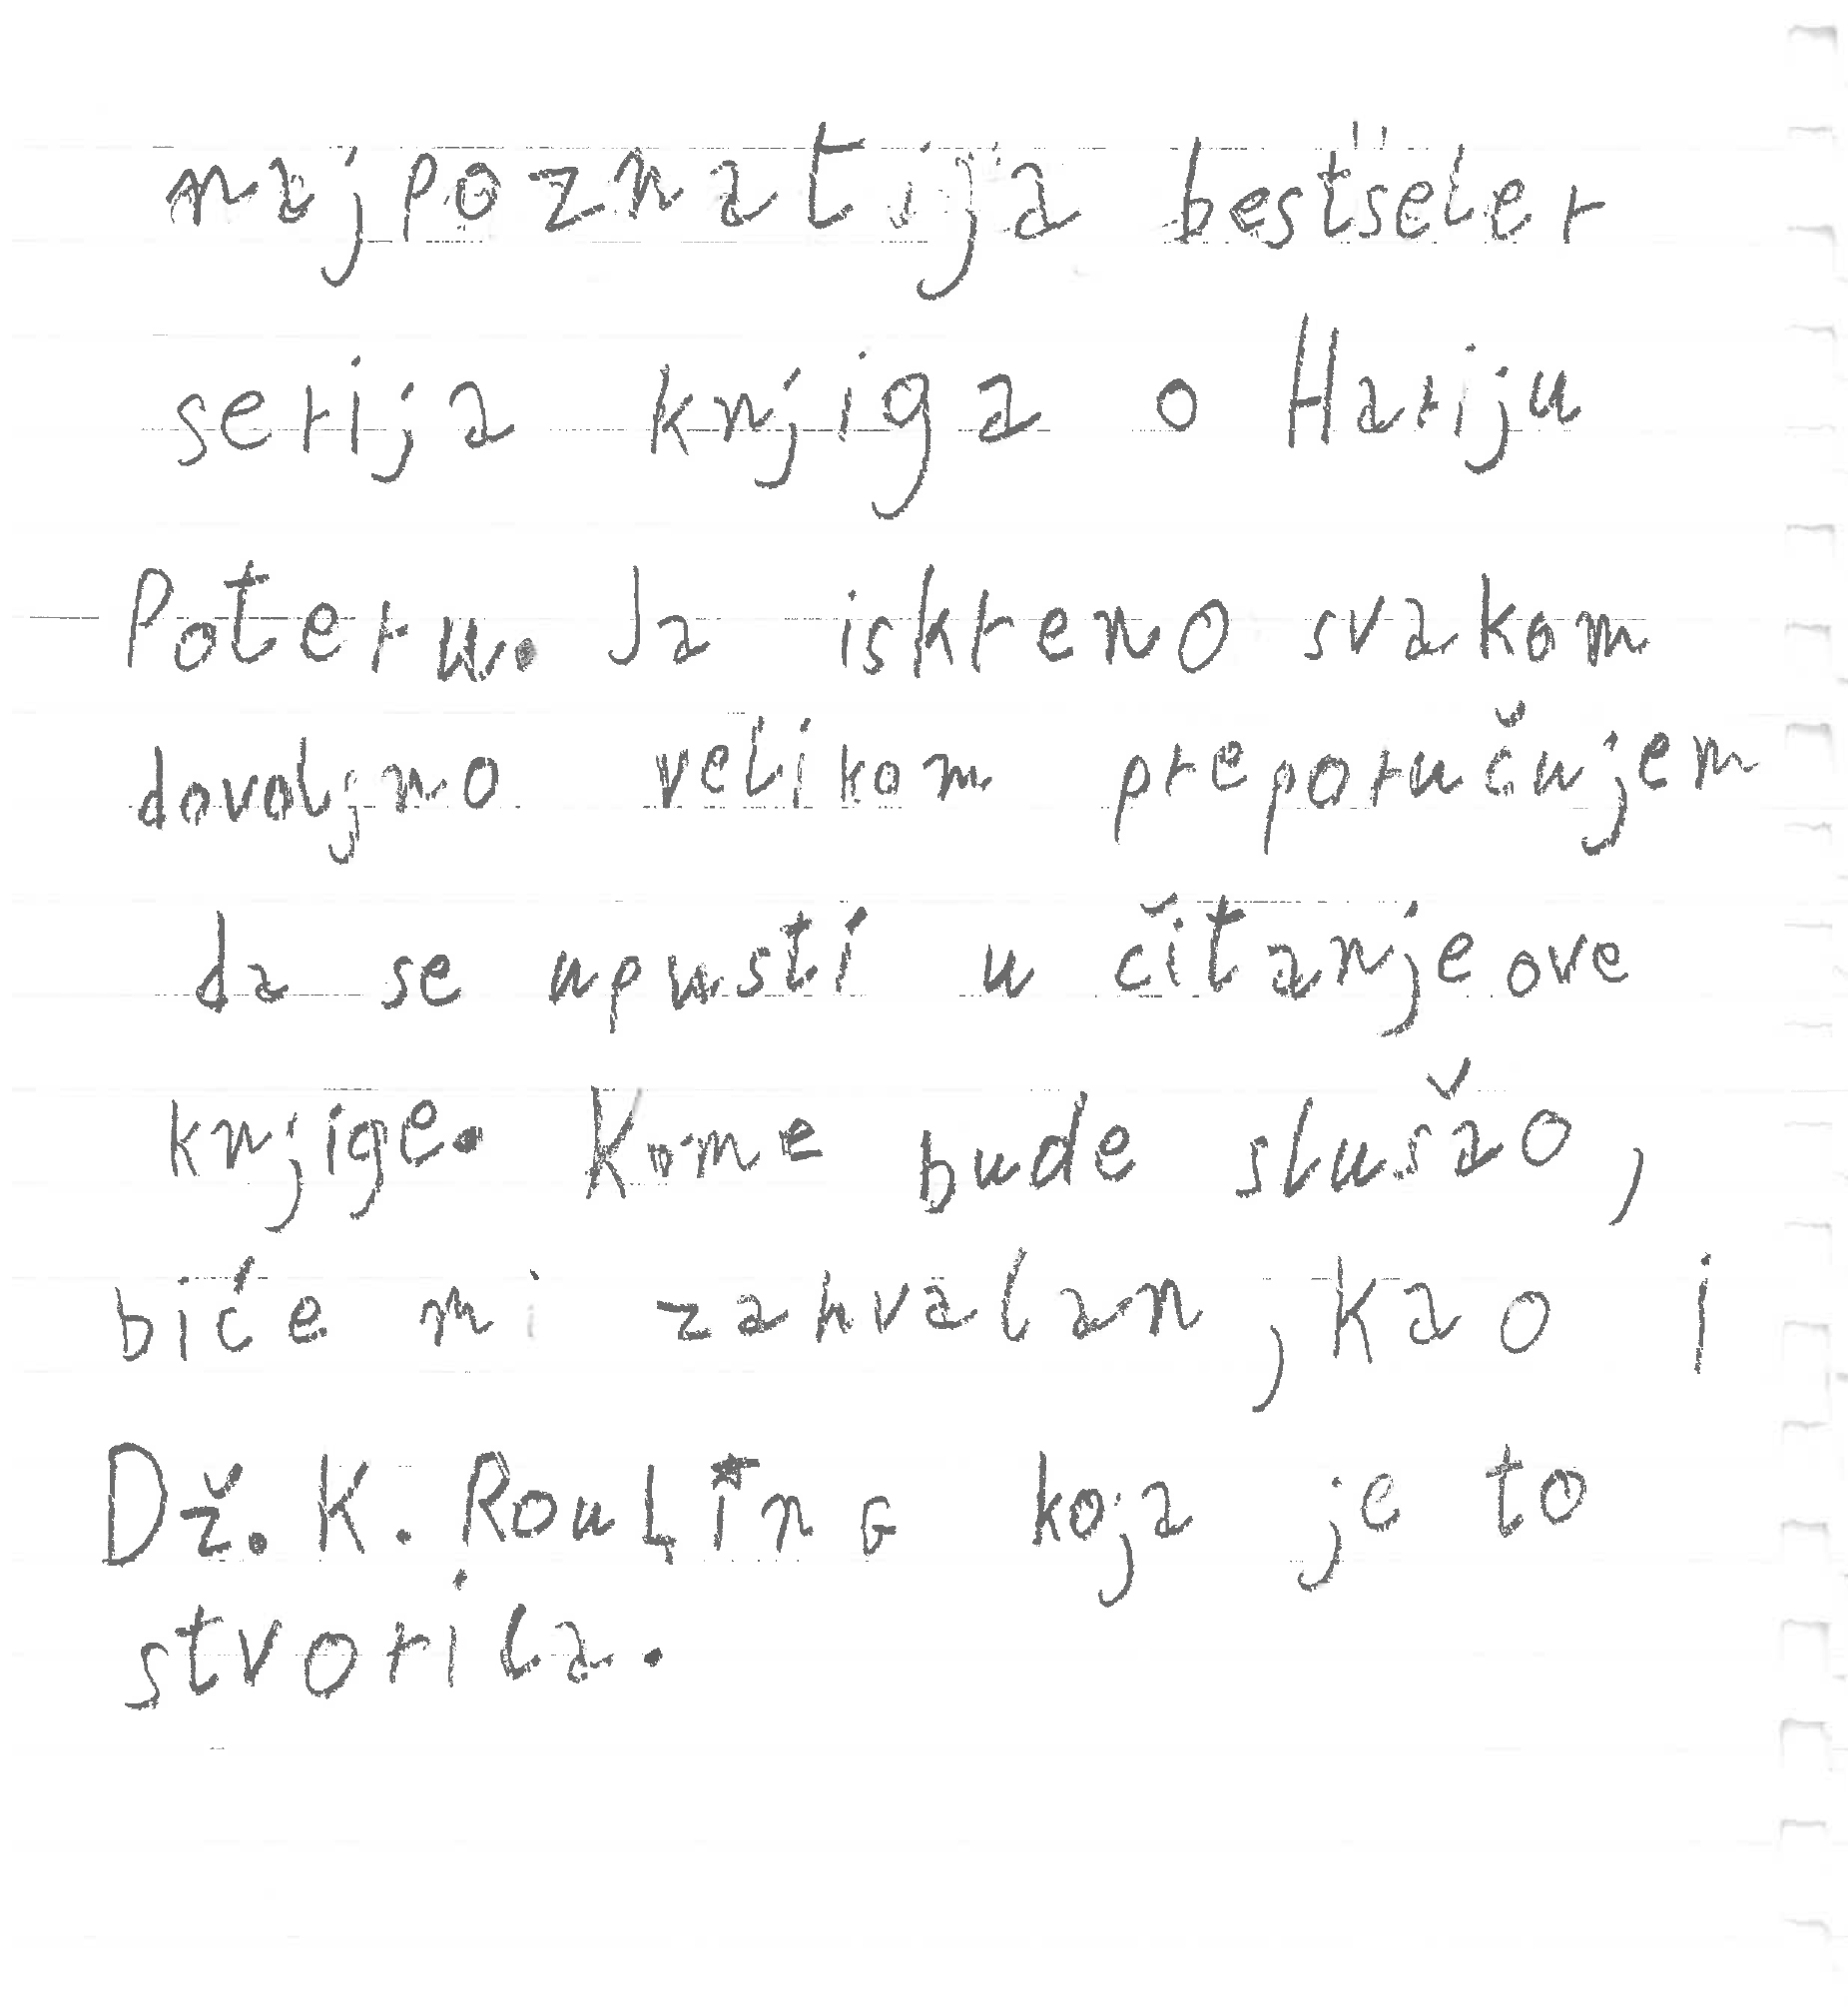 najpoznatija bestseler
serija knjiga o Hariju
Poteru. Ja iskreno svakom
dovoljno velikom preporučujem
da se upusti u čitanje ove
knjige. Kome bude slušao,
biće mi zahvalan, kao i
Dž. K. Rouling koja je to
stvorila.